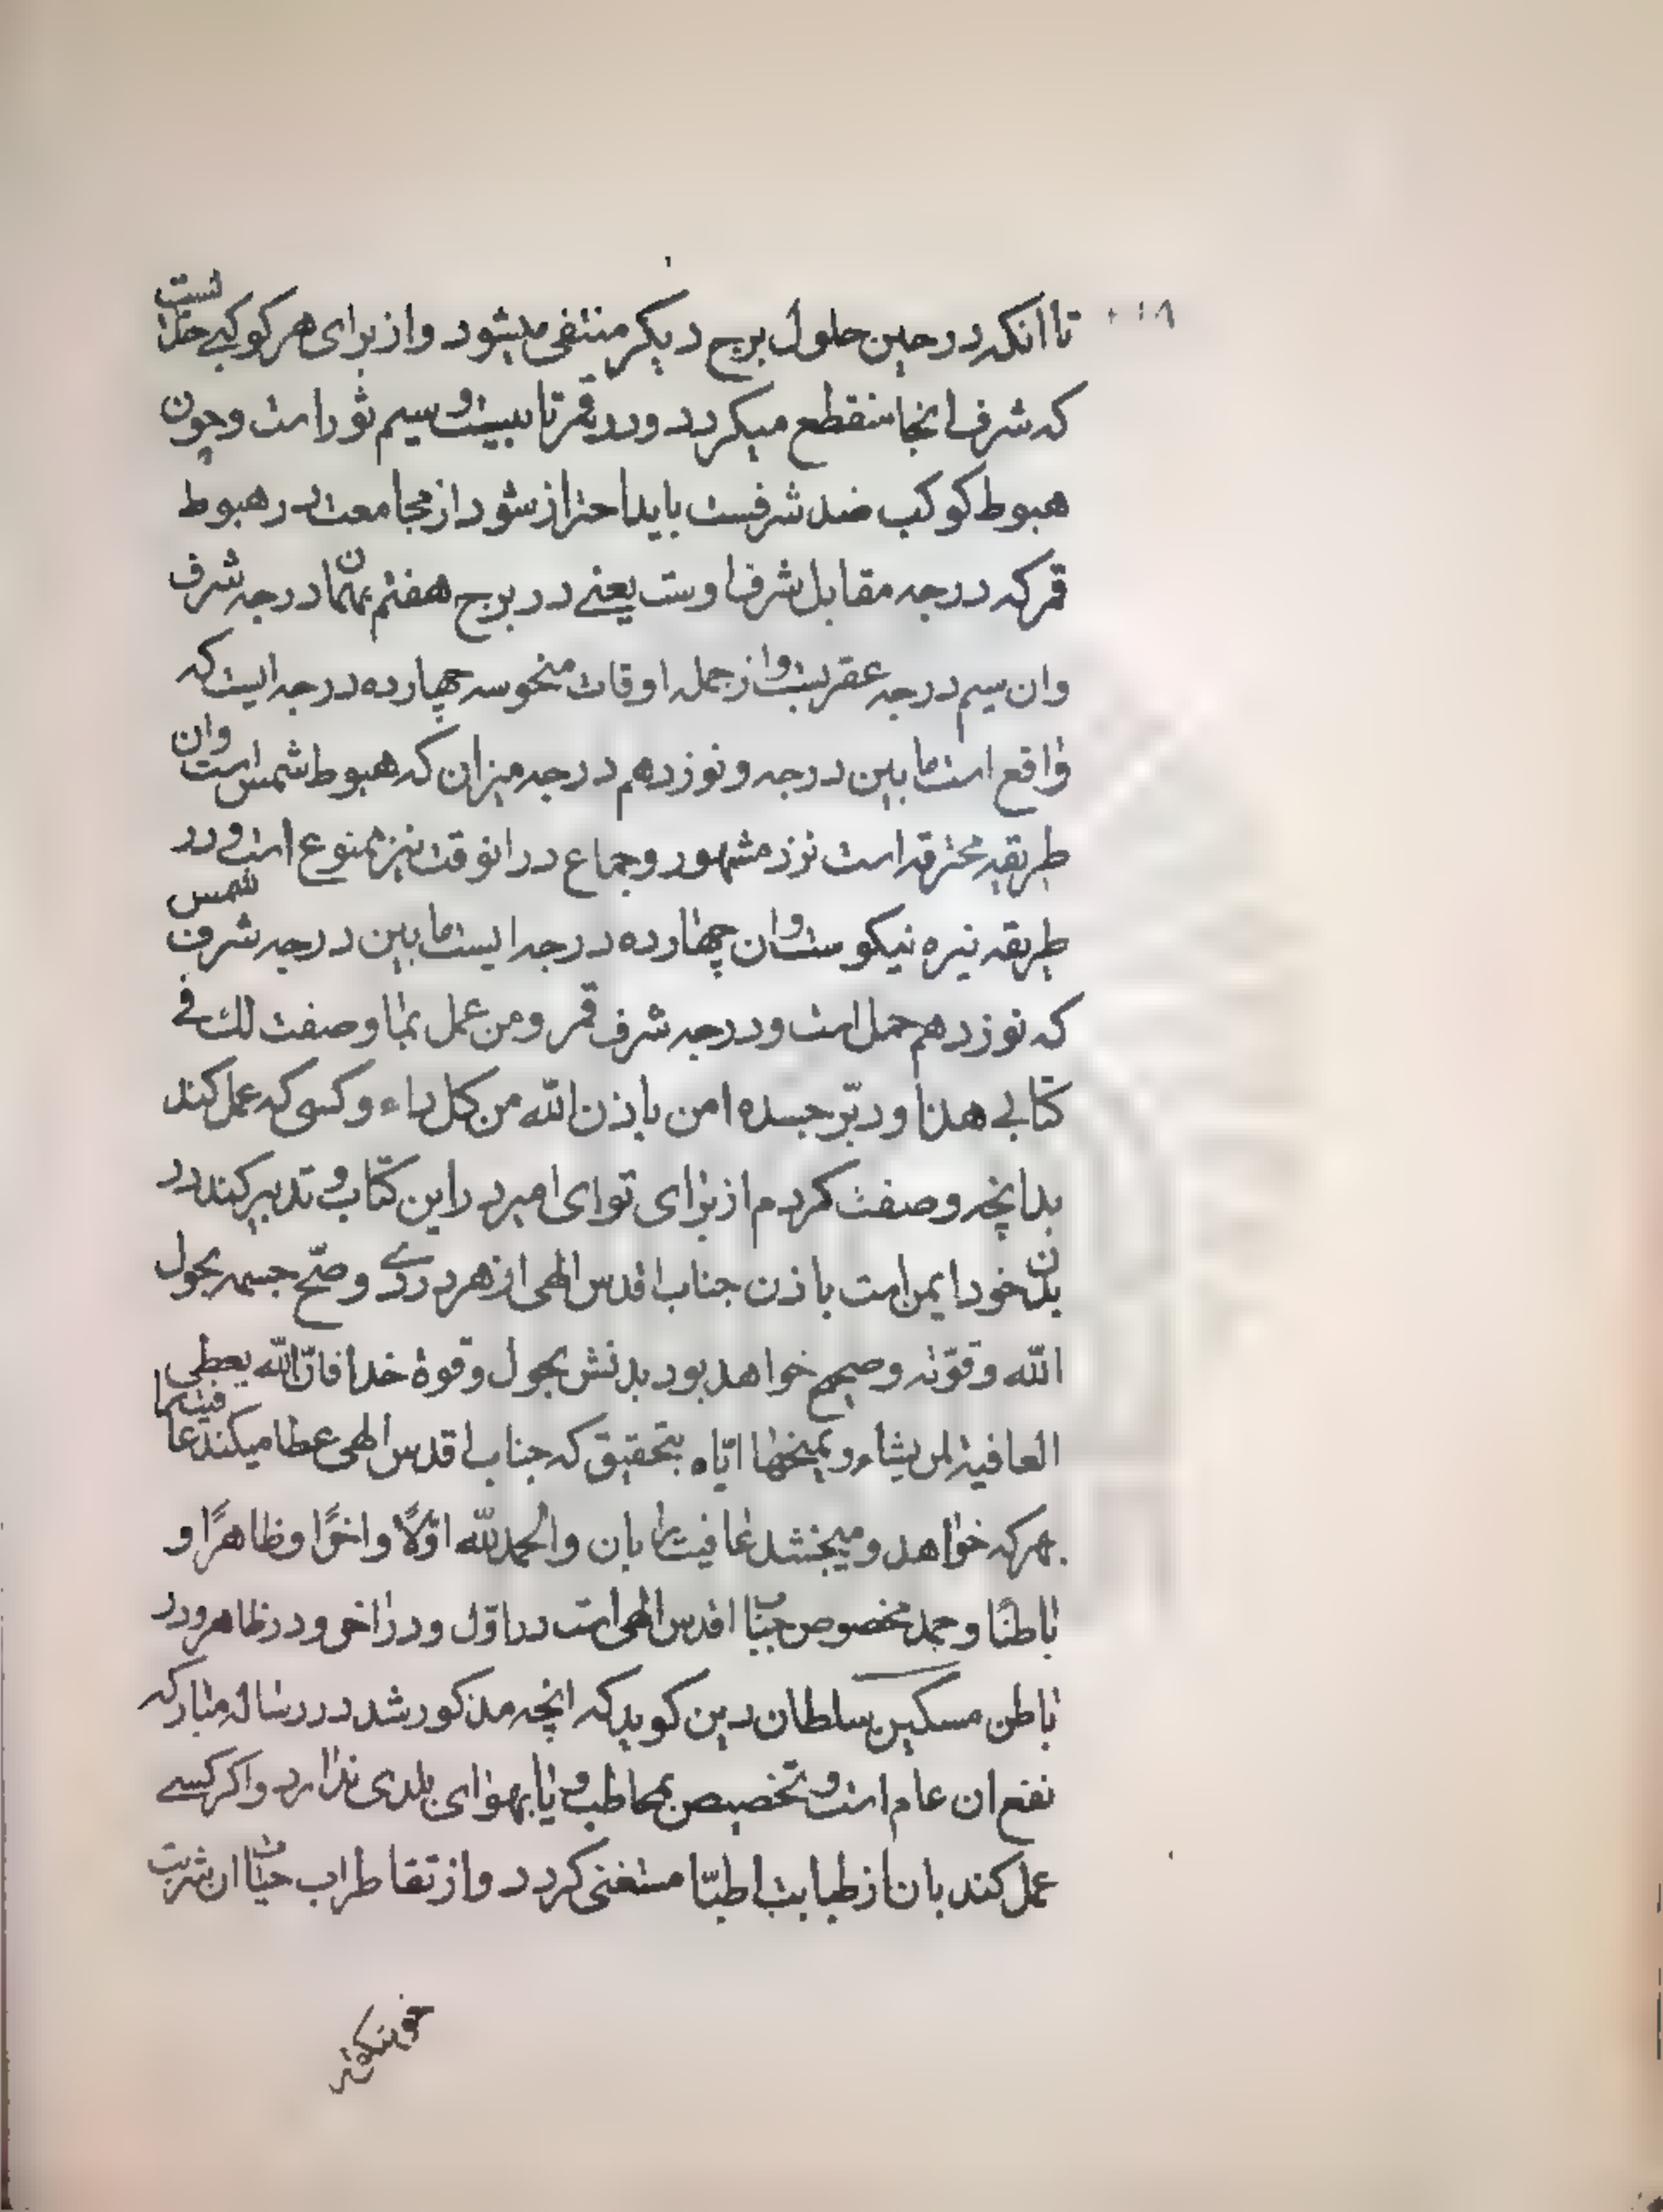 تا انکه در حین حلول برج دیکر منتفی میشود و از برای هر کوکبی حدیست
که شرف انجا منقطع میکردد و در قمر تا بیست و سیم ثور است و چون
هبوط کوکب ضد شرفست باید احتراز شود از مجامعت در هبوط
قمر که درجه مقابل شرف اوست یعنے در برج هفتم بهمان درجه شرف
وان سیم درجه عقربست و از جمله اوقات منحوسه چهارده درجه ایست که
واقع است ما بین درجه و نوزدهم درجه میزان که هبوط شمس است وان
طریقه محترقه است نزد مشهور و جماع در انوقت نیز ممنوع است و در
طریقه نیره نیکوست وان چهارده درجه ایست ما بین درجه شرف شمس
که نوزدهم حمل است و درجه شرف قمر و من عمل بما وصفت لك فے
کتابے هذا و دبّر جسده امن باذن الله من کل داء و کسی که عمل کند
بدانچه وصفت کردم از برای تو ای امیر در این کتاب و تدبیر کند در
بدن خود ایمن است باذن جناب اقدس الهی از هر دردے و صحّ جسمه بحول
الله و قوّته و صحیح خواهد بود بدنش بحول و قوة خدا فانّ الله یعطی
العافیة لمن یشاء و یمنحها ایّاه بتحقیق که جناب اقدس الهی عطا میکند عافیت را
بهر که خواهد و میبخشد عافیت را بان والحمد لله اوّلًا و اخرًا و ظاهرًا و
باطنًا و حمد مخصوص جناب اقدس الهی است در اوّل و در اخر و در ظاهر و در
باطن مسکین سلطان دین کوید که انچه مذکور شد در رساله مبارکه
نفع ان عام است و تخصیص بمخاطب و یا بهوای بلدی ندارد و اکر کسے
عمل کند بان از طبابت اطبّا مستغنی کردد و از تقاطر اب حیات ان شربت